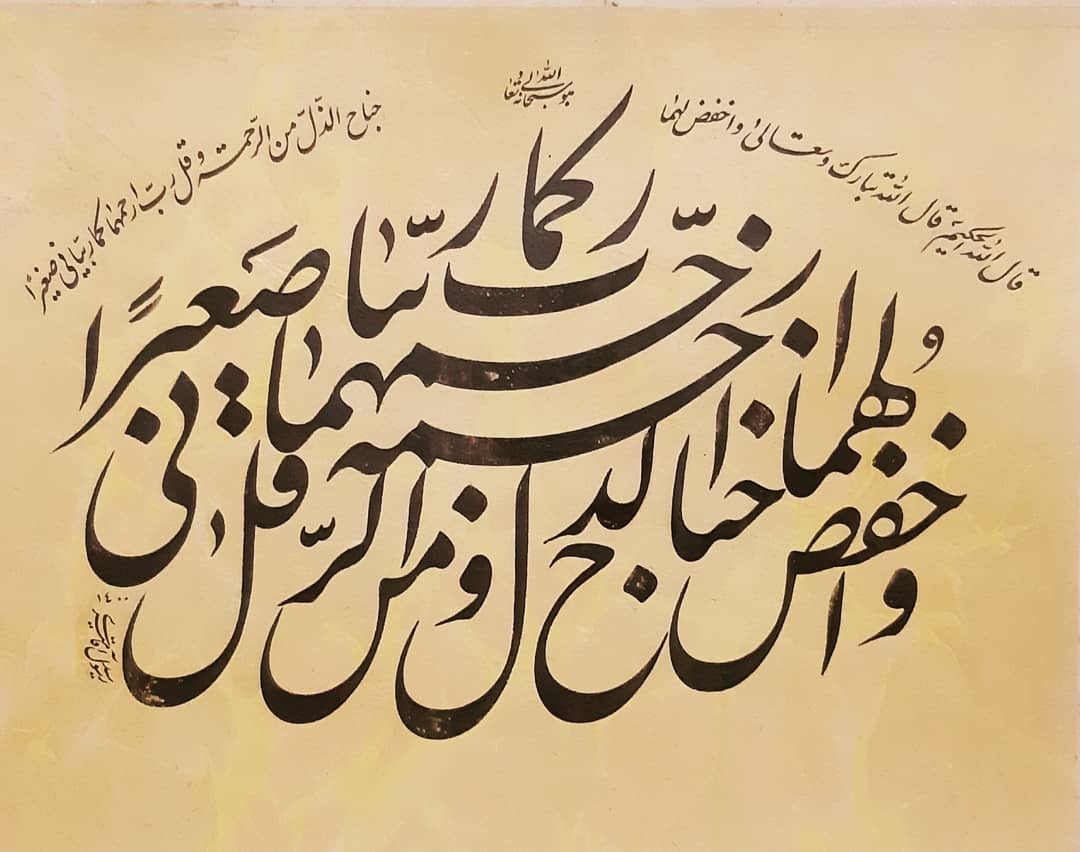 هو الله سبحانه و تعالی
قال الله الحکیم قال الله تبارک وتعالیٰ واخفض لهما
جناح الذّلّ من الرّحمة و قل ربّ ارحمهما کما ربّیانی صغیرًا
واخفض لهما جناح الذل من الرّحمة و قل ربّ ارحمهما کما ربّیانی صغیرًا
١٤٠٠